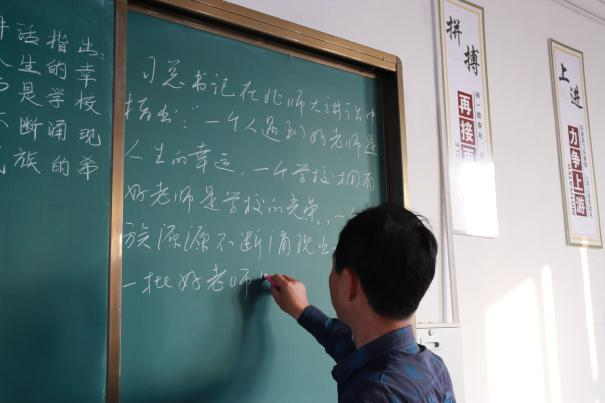 话指出:
人生的幸
是学校
不断涌现
民族的希
习总书记在北师大讲话中
指出:一个人遇到好老师是
人生的幸运,一个学校拥有
好老师是学校的光荣,一
族源源不断涌现出
一批好老师
拼搏
再接再
上进
力争上游